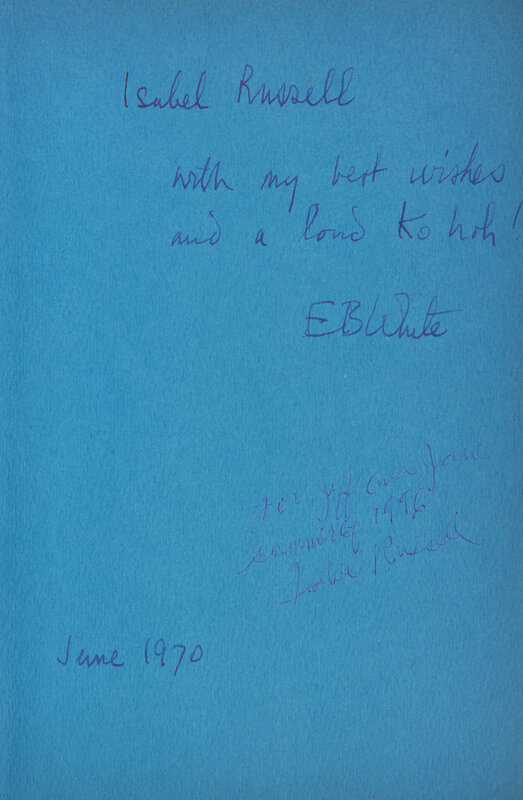 Isabel Russell
with my best wishes
and a loud Ko hoh!
EBWhite
For Jeff and
summer of 1996
Isabel Russell
June 1970